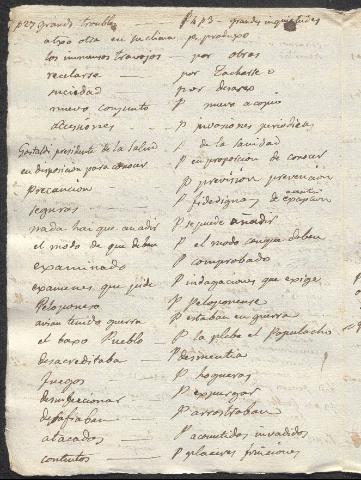 p27 grandes troubles P 4p3 - grandes inquietudes
otra en su clima p. produxo
los inmensos travajos — por obras
recelarse — por
suciedad — por deseareo
nuevo conjunto P nuevo acopio
accesiones P invasiones periodicas
Gastaldi presidente de la salud P de la sanidad
en disposicion para conocer P en proporcion de conocer
precaucion P prevision prevencion
seguras — P fidedignas, de excepcion
nada hay que añadir P se puede añadir
el modo de que deben P el modo con que deben
examinado P comprobado
examenes que pide P indagaciones que exige
Peloponeso P Peloponense
avian tenido guerra P estaban en guerra
el baxo Pueblo — P la plebe el Populacho
desacreditaba — P desmentia
fuegos P hogueras
desinfeccionar P expurgar
desafiaban P arrostraban
atacados P acometidos invadidos
contentos P placeres fruiciones